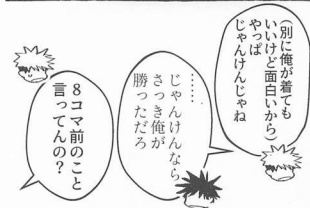 (別に俺が着ても
いいけど面白いから)
やっぱ
じゃんけんじゃね
……
じゃんけんなら
さっき俺が
勝っただろ
8コマ前のこと
言ってんの?